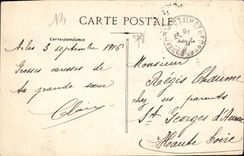 CARTE POSTALE
Correspondance
Arles 3 septembre 1916
Grosses caresses de
ta grande sœur
Monsieur
Régis Chaume
chez ses parents
St Georges d'Aurac
Haute Loire